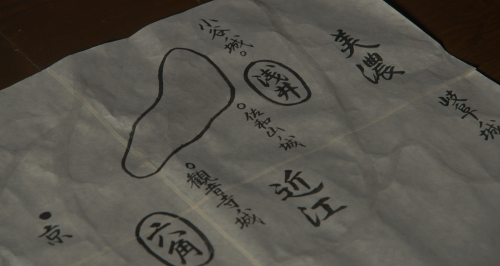 美濃
岐阜城
小谷城
浅井
佐和山城
近江
観音寺城
六角
京